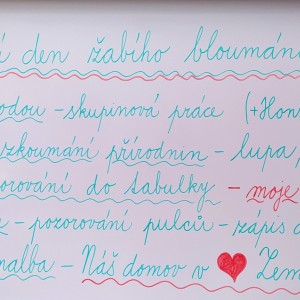 í den žabího bloumán
odou - skupinová práce (+Hon
zkoumání přírodnin - lupa
orování do tabulky - moje
- pozorování pulců - zápis
malba - Náš domov v ♥ Zem